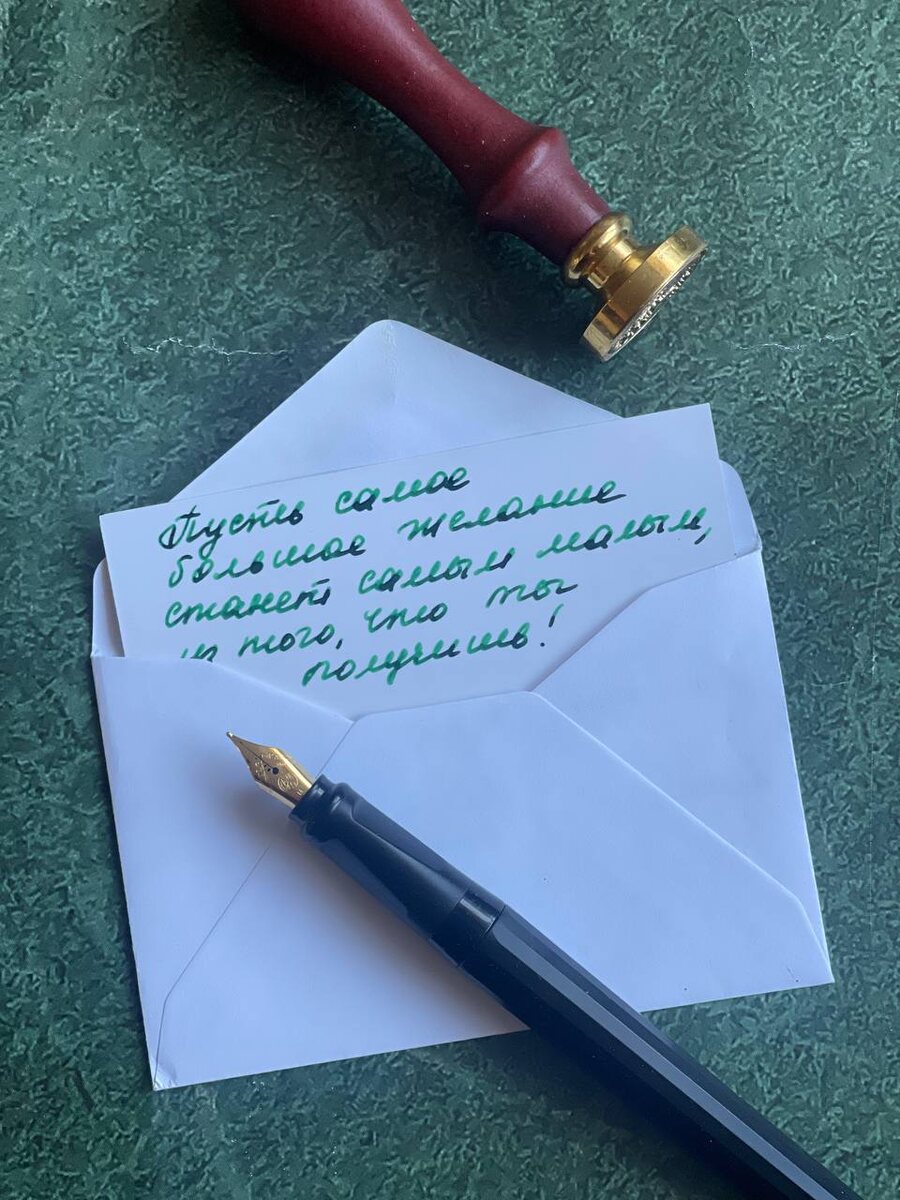 Пусть самое
большое желание
станет самым малым,
из того, что ты
получишь!